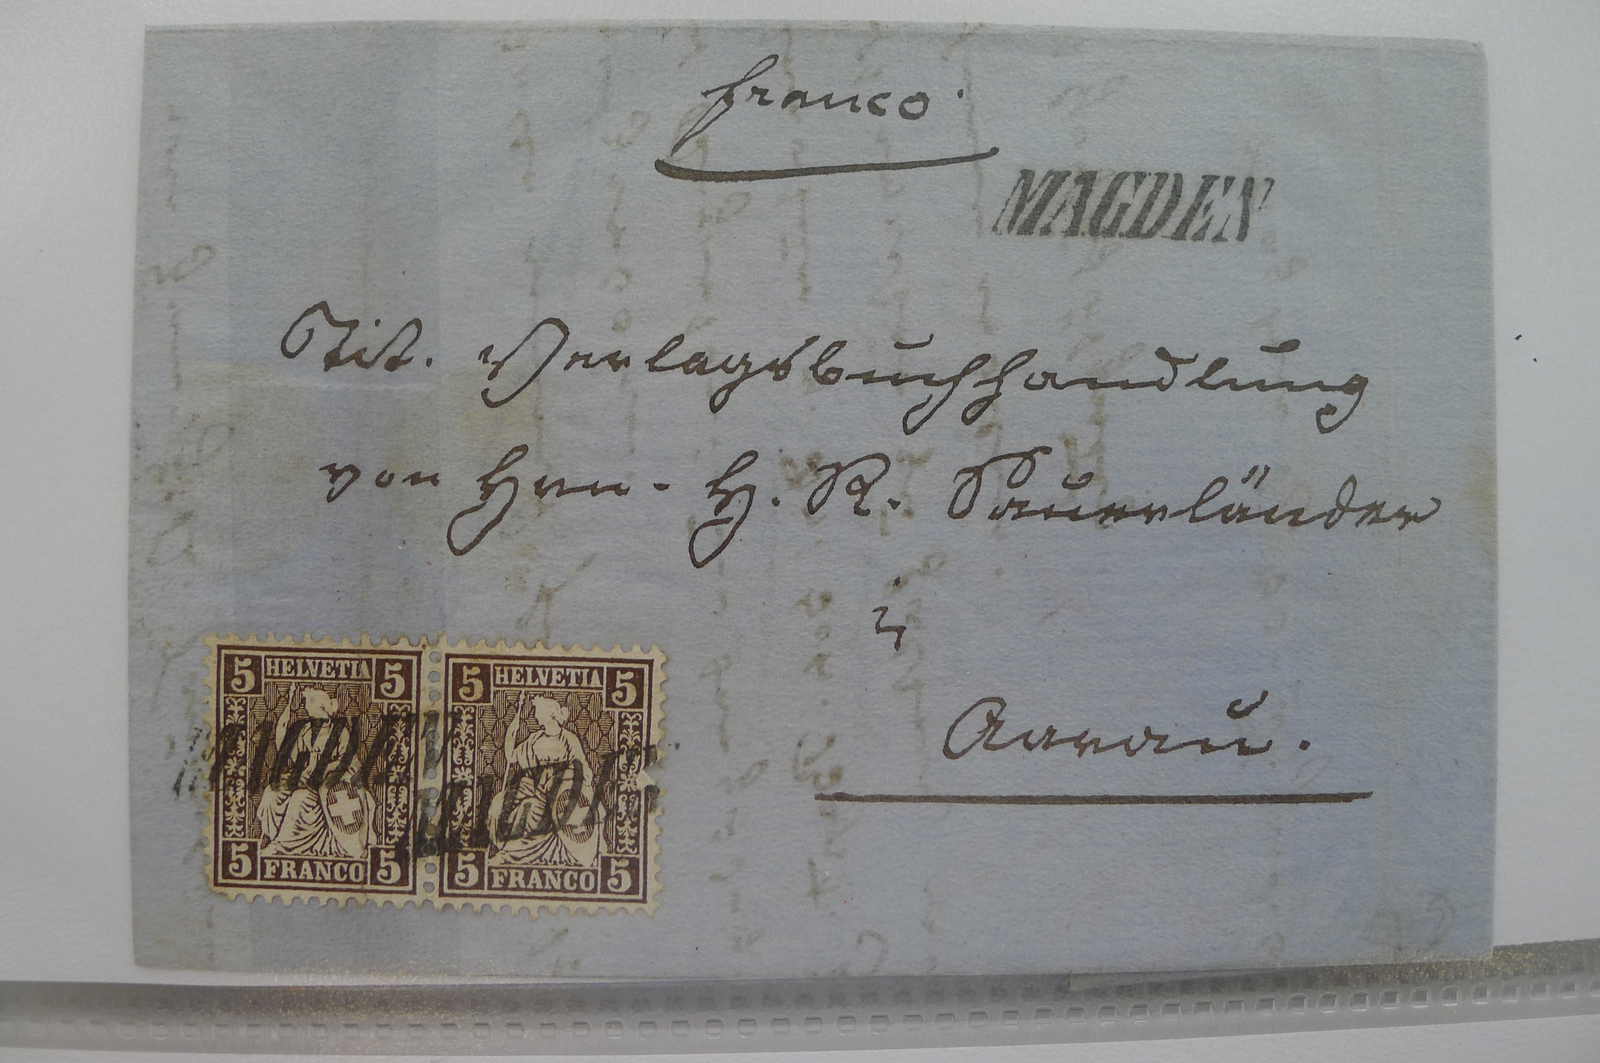 franco.
MAGDEN
Tit. Verlagsbuchhandlung
von Hrn. H. R. Sauerländer
in
Aarau.
5 HELVETIA 5
5 HELVETIA 5
MAGDEN
MAGDEN
5 FRANCO 5
5 FRANCO 5